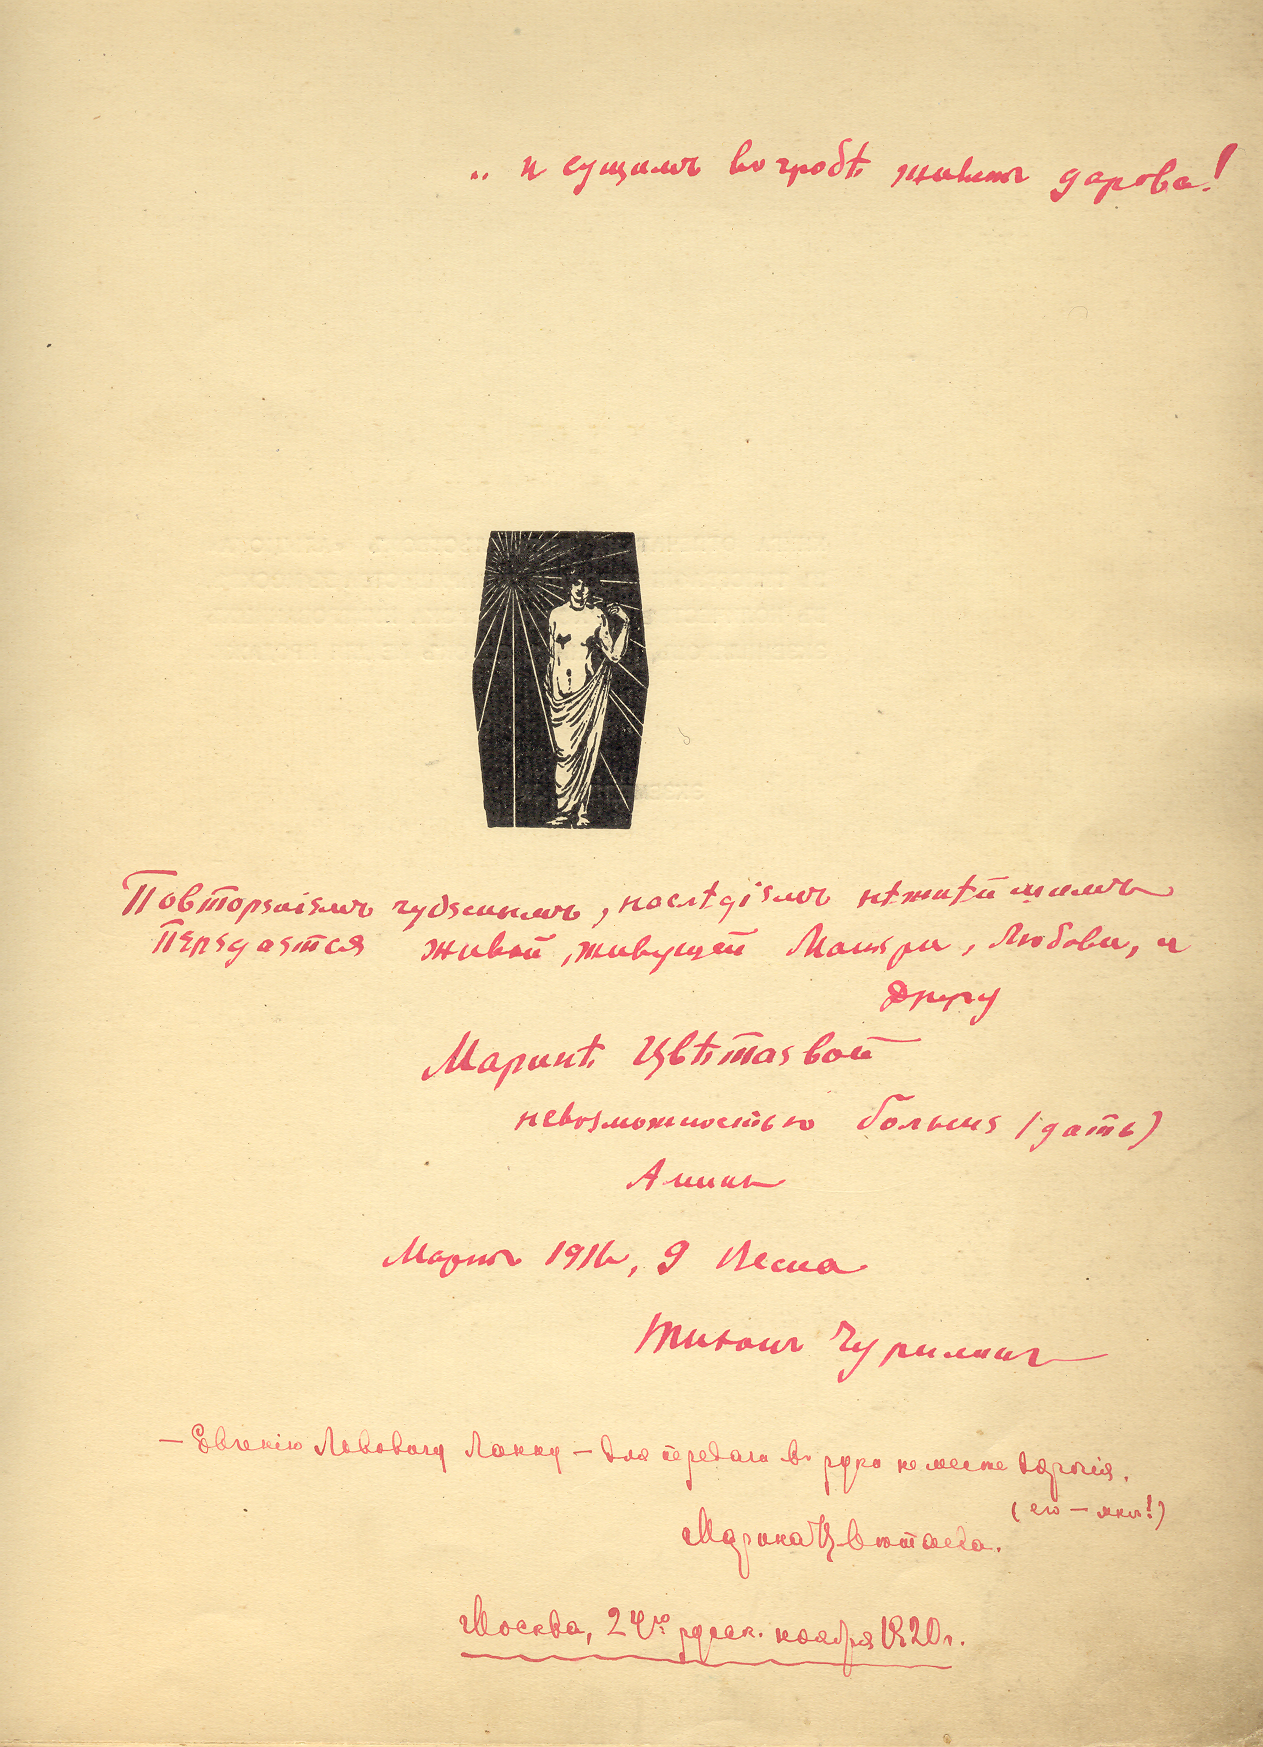 .. и сущимъ во гробѣ животъ дарова!
Повторенiемъ чудеснымъ, наслѣдiемъ нѣжнѣйшимъ
Передается живой, живущей Матери, Любови, и
Другу
Маринѣ Цвѣтаевой
невозможностью больше (дать)
Аминь
Мартъ 1916, 9 Весна
Тихонъ Чурилинъ
— Евгенію Львовичу Ланну — для передачи въ руки не менѣе дорогія.
(его — мнѣ!)
Марина Цвѣтаева.
Москва, 24го русск. ноября 1920 г.